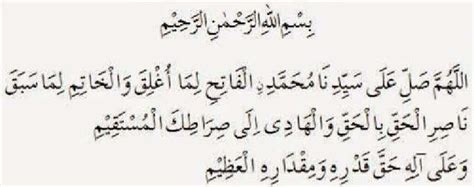 بِسْمِ اللهِ الرَّحْمٰنِ الرَّحِيْمِ
اللَّهُمَّ صَلِّ عَلَى سَيِّدِ نَا مُحَمَّدِنِ الْفَاتِحِ لِمَا أُغْلِقَ وَالْخَاتِمِ لِمَا سَبَقَ
نَاصِرِ الْحَقِّ بِالْحَقِّ وَالْهَادِى اِلَى صِرَاطِكَ الْمُسْتَقِيْمِ
وَعَلَى آلِهِ حَقَّ قَدْرِهِ وَمِقْدَارِهِ الْعَظِيْمِ